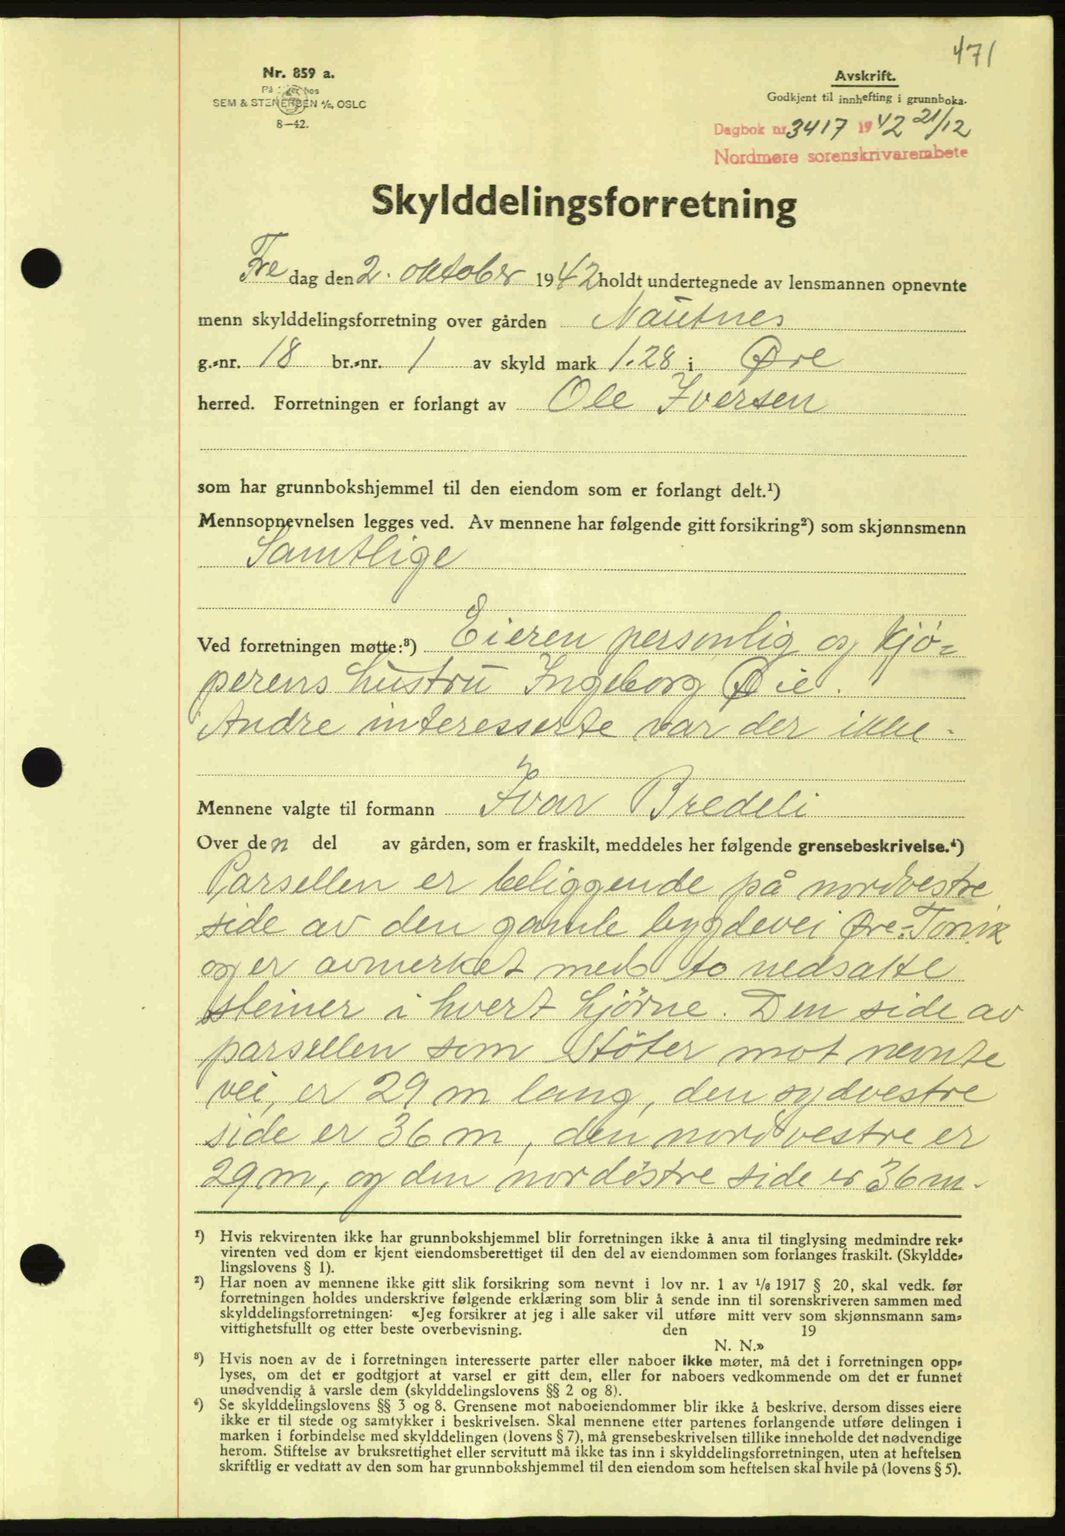 471
Nr. 859 a.
SEM & STENERSEN A/S, OSLO
8—42.
Avskrift.
Godkjent til innhefting i grunnboka.
Dagbok nr. 3417 1942 21/12
Nordmøre sorenskrivarembete
Skylddelingsforretning
Fre dag den 2. oktober 1942 holdt undertegnede av lensmannen opnevnte
menn skylddelingsforretning over gården Nautnes
g.-nr. 18 br.-nr. 1 av skyld mark 1.28 i Øre
herred. Forretningen er forlangt av Ole Iversen
som har grunnbokshjemmel til den eiendom som er forlangt delt.¹)
Mennsopnevnelsen legges ved. Av mennene har følgende gitt forsikring²) som skjønnsmenn
Samtlige
Ved forretningen møtte:³) Eieren personlig og kjø-
perens hustru Ingeborg Øie.
Andre interesserte var der ikke.
Mennene valgte til formann Ivar Bredeli
Over den del av gården, som er fraskilt, meddeles her følgende grensebeskrivelse.⁴)
Parsellen er beliggende på nordvestre
side av den gamle bygdevei Øre-Torvik
og er avmerket med to nedsatte
steiner i hvert hjørne. Den side av
parsellen som støter mot nevnte
vei, er 29 m lang, den sydvestre
side er 36 m, den nordvestre er
29 m, og den nordöstre side er 36 m.
¹) Hvis rekvirenten ikke har grunnbokshjemmel blir forretningen ikke å anta til tinglysing medmindre rek-
virenten ved dom er kjent eiendomsberettiget til den del av eiendommen som forlanges fraskilt. (Skyldde-
lingslovens § 1).
²) Har noen av mennene ikke gitt slik forsikring som nevnt i lov nr. 1 av ¹/₆ 1917 § 20, skal vedk. før
forretningen holdes underskrive følgende erklæring som blir å sende inn til sorenskriveren sammen med
skylddelingsforretningen: «Jeg forsikrer at jeg i alle saker vil utføre mitt verv som skjønnsmann sam-
vittighetsfullt og etter beste overbevisning. den 19
N. N.»
³) Hvis noen av de i forretningen interesserte parter eller naboer ikke møter, må det i forretningen opp-
lyses, om det er godtgjort at varsel er gitt dem, eller for naboers vedkommende om det er funnet
unødvendig å varsle dem (skylddelingslovens §§ 2 og 8).
⁴) Se skylddelingslovens §§ 3 og 8. Grensene mot naboeiendommer blir ikke å beskrive, dersom disses eiere
ikke er til stede og samtykker i beskrivelsen. Skal mennene etter partenes forlangende utføre delingen i
marken i forbindelse med skylddelingen (lovens § 7), må grensebeskrivelsen tillike inneholde det nødvendige
herom. Stiftelse av bruksrettighet eller servitutt må ikke tas inn i skylddelingsforretningen, uten at heftelsen
skriftlig er vedtatt av den som har grunnbokshjemmel til den eiendom som heftelsen skal hvile på (lovens § 5).